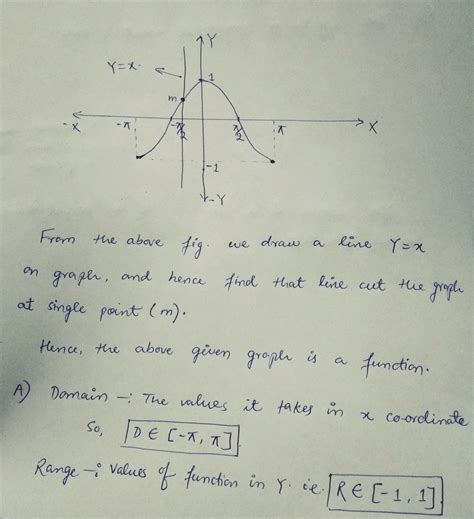 Y
Y=x
1
m
-x
-π
-π/2
π/2
π
X
-1
-Y
From the above fig. we draw a line Y=x
on graph, and hence find that line cut the graph
at single point (m).
Hence, the above given graph is a function.
A) Domain -: The values it takes in x co-ordinate
So, D ∈ [-π, π]
Range -: values of function in Y. i.e. R ∈ [-1, 1]